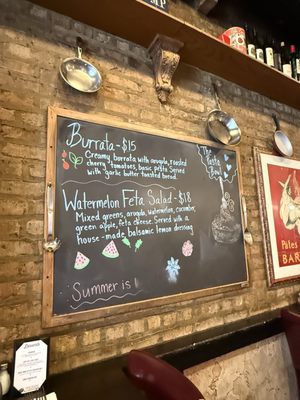 Burrata-$15
Creamy burrata with arugula, roasted
cherry tomatoes, basic pesto served
with garlic butter toasted bread.
The Pasta
Bowl
Watermelon Feta Salad-$18
Mixed greens, arugula, watermelon, cucumber,
green apple, feta cheese served with a
house-made balsamic lemon dressing
Summer is
Pâtes
BAR